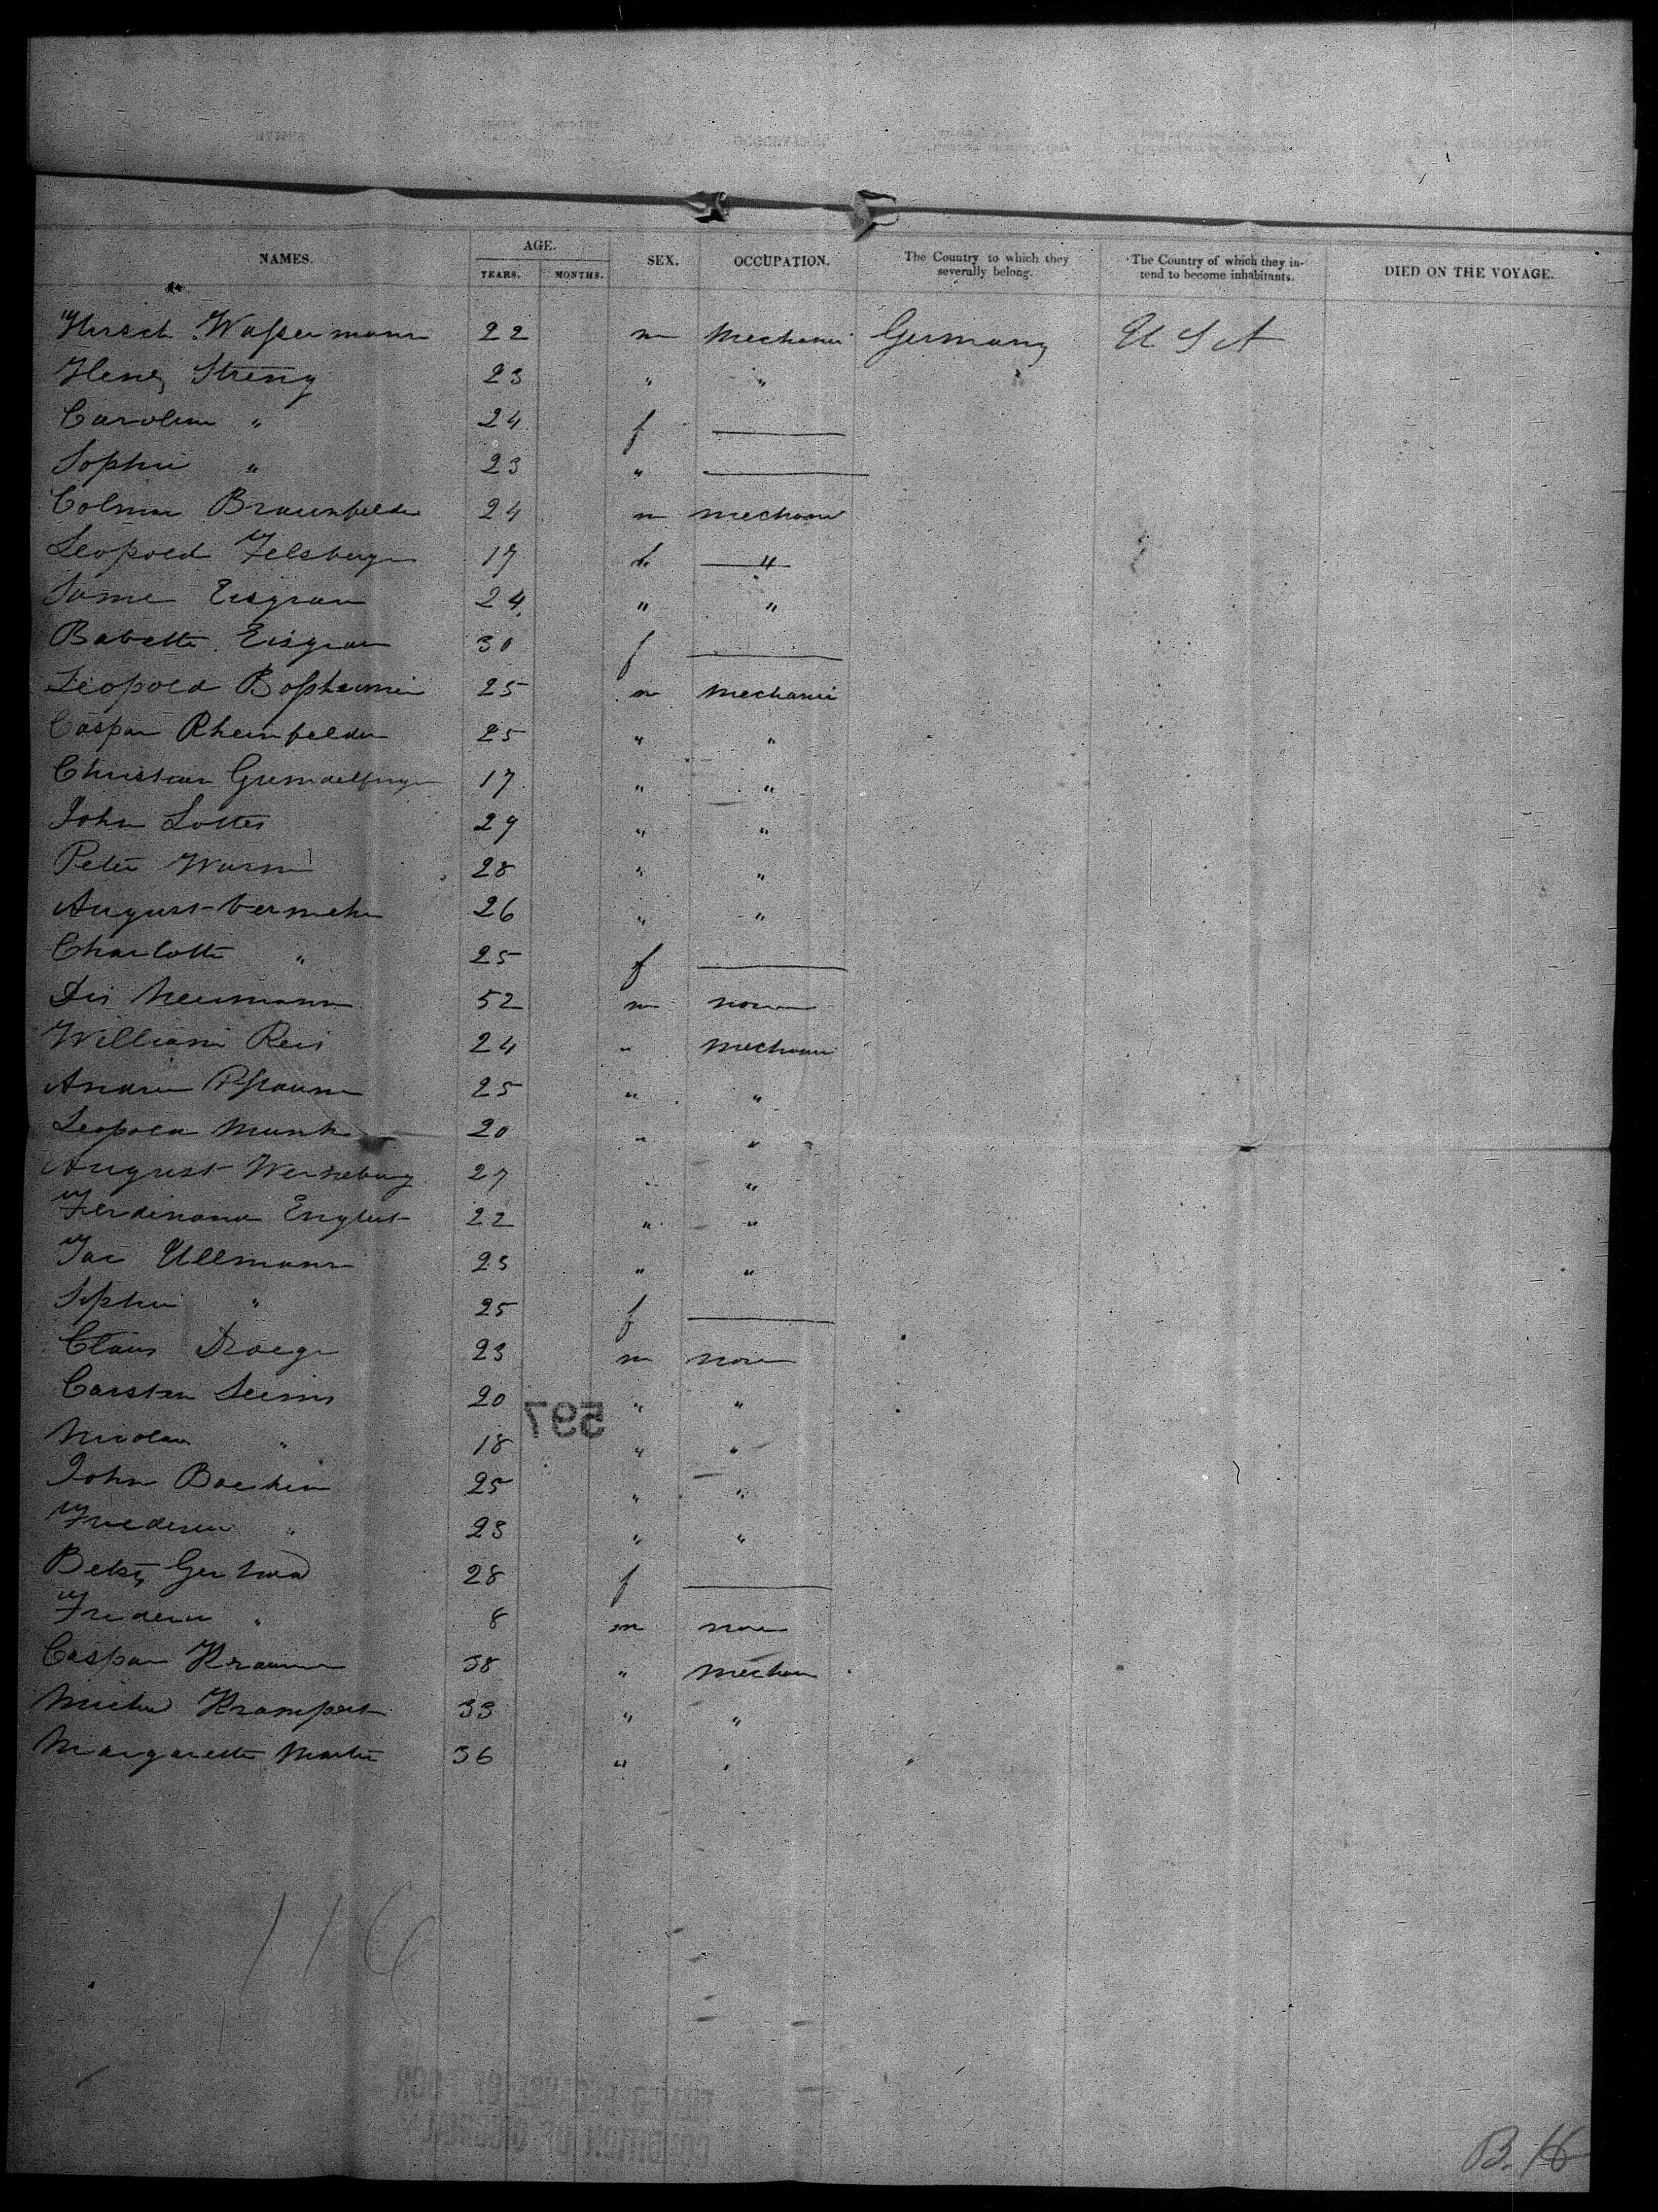 NAMES. AGE. YEARS. MONTHS. SEX. OCCUPATION. The Country to which they severally belong. The Country of which they intend to become inhabitants. DIED ON THE VOYAGE.
Hirsch Wassermann 22 m Mechanic Germany U S A
Henry Streng 23 " "
Carolin " 24 f
Sophie " 23 "
Colman Braunfelder 24 m mechanic
Leopold Felsberg 17 "
24 " "
Babette 30 f
Leopold 25 m mechanic
Caspar Rheinfelder 25 " "
Christian 17 " "
John Lottes 29 " "
Peter Wurm 28 " "
August Vermehr 26 " "
Charlotte " 25 f
Neumann 52 m none
William Reis 24 " mechanic
Andrew Pflaum 25 " "
Leopold Munk 20 " "
August Werneburg 27 " "
Ferdinand Englert 22 " "
Jac Ullmann 23 " "
Sophie " 25 f
Claus Droege 23 m none
Carsten 20 " "
597
Nicolaus " 18 " "
John 25 " "
Frederic " 23 " "
Betsy 28 f
Frederic " 8 m none
Caspar 38 " mechanic
Michel Krampert 33 " "
Margarethe Martin 36 " "
116
FILMED BECAUSE OF POOR
CONDITION OF ORIGINAL
B. 16